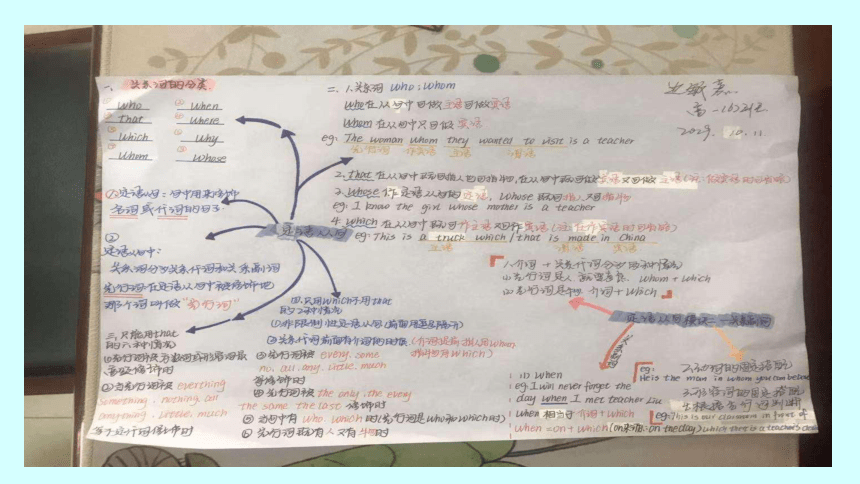 一、关系词的分类.
① Who ⑤ When
② That ⑥ Where
③ Which ⑦ Why
④ Whom ⑧ Whose
①定语从句：句中用来修饰
名词或代词的句子
②
定语从句中：
关系词分为关系代词和关系副词
先行词:在定语从句中被修饰的
那个词叫做"先行词"
定语从句
二、1.关系词 who；whom
Who在从句中可做主语可做宾语
Whom在从句中只可做 宾语
eg: The woman whom they wanted to visit is a teacher
先行词 作宾语 主语 谓语
2. that 在从句中既可指人也可指物，在从句中既可做宾语又可做主语
3. whose作定语从句的定语，whose既可指人，又可指物
eg: I know the girl whose mother is a teacher
4. which在从句中既可作主语又可作宾语
eg: This is a truck which / that is made in China
高一
2023. 10. 11.
三、只能用that
的六种情况
①先行词被序数词或形容词最
高级修饰时
②当先行词被 everthing
something, nothing, all
anything, little, much
等不定代词修饰时
③先行词被 every, some,
no, all, any, little, much
等修饰时
④先行词被 the only, the every
the same, the last 修饰时
⑤句中有who, which时(先行词是who和which时)
⑥先行词既有人又有物时
四、只用which不用that
的2种情况
①非限制性定语从句
②关系代词前面有介词的时候
1.介词 + 关系代词分为两种情况
①先行词是人 whom + which
②先行词是物 介词 + which
eg:
He is the man in whom you can believe
eg: This is our classroom in front of
which there is a teacher's desk
① when
eg. I will never forget the
day when I met teacher Liu
when 相当于 介词 + which
when = on + which (on来源: on the day)